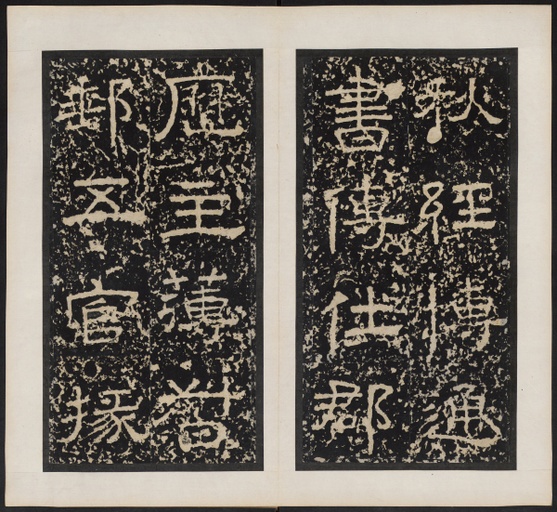 秋經愽通
書傳仕郡
歷主薄督
郵五官掾